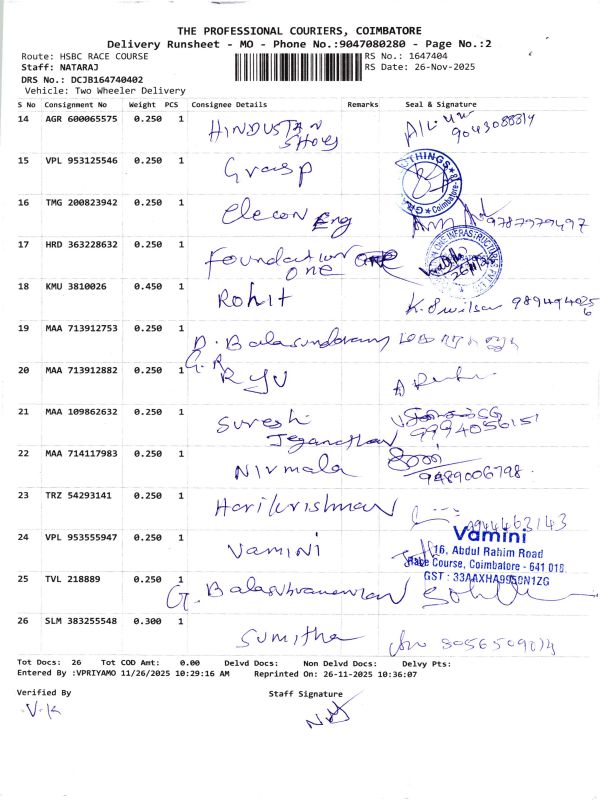 THE PROFESSIONAL COURIERS, COIMBATORE
Delivery Runsheet - MO - Phone No.:9047080280 - Page No.:2
Route: HSBC RACE COURSE RS No.: 1647404
Staff: NATARAJ RS Date: 26-Nov-2025
DRS No.: DCJB164740402
Vehicle: Two Wheeler Delivery
S No Consignment No Weight PCS Consignee Details Remarks Seal & Signature
14 AGR 600065575 0.250 1 HINDUSTAN
SHOES
15 VPL 953125546 0.250 1 Grasp THINGS Coimbatore
16 TMG 200823942 0.250 1 Elecon Eng 9787979497
17 HRD 363228632 0.250 1 Foundation
one ONE INFRASTRUCTURE PVT
18 KMU 3810026 0.450 1 Rohit
19 MAA 713912753 0.250 1 D. Balasundaram
G.R
20 MAA 713912882 0.250 1 RYU
21 MAA 109862632 0.250 1 Suresh
Jeganathan 9994056151
22 MAA 714117983 0.250 1 Nirmala
9489006798
23 TRZ 54293141 0.250 1 Harikrishman 9944463143
24 VPL 953555947 0.250 1 VAMINI Vamini
16, Abdul Rahim Road
Race Course, Coimbatore - 641 018
GST : 33AAXHA9950N1ZG
25 TVL 218889 0.250 1 G. Balasubramanian
26 SLM 383255548 0.300 1 Sumitha
Tot Docs: 26 Tot COD Amt: 0.00 Delvd Docs: Non Delvd Docs: Delvy Pts:
Entered By :VPRIYAMO 11/26/2025 10:29:16 AM Reprinted On: 26-11-2025 10:36:07
Verified By Staff Signature
V.K